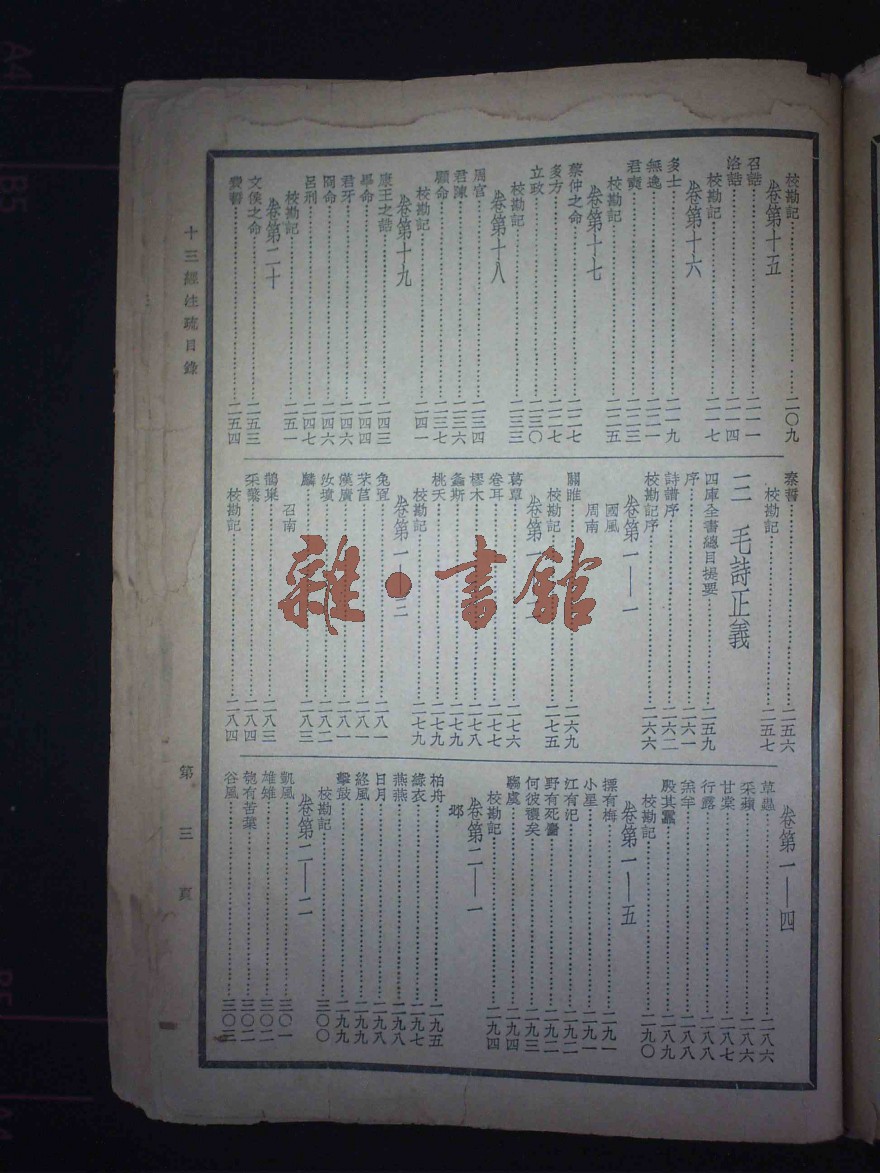 校勘記……二〇九
卷第十五
召誥……二一一
洛誥……二一四
校勘記……二一七
卷第十六
多士……二一九
無逸……二二一
君奭……二二三
校勘記……二二五
卷第十七
蔡仲之命……二二七
多方……二二七
立政……二三〇
校勘記……二三三
卷第十八
周官……二三四
君陳……二三六
顧命……二三七
校勘記……二四一
卷第十九
康王之誥……二四三
畢命……二四四
君牙……二四六
冏命……二四六
呂刑……二四七
校勘記……二五一
卷第二十
文侯之命……二五三
費誓……二五四
秦誓……二五六
校勘記……二五七
三 毛詩正義
四庫全書總目提要……二五九
序……二六一
詩譜序……二六二
校勘記序……二六六
卷第一——一
國風
周南
關雎……二六九
校勘記……二七五
卷第一——二
葛覃……二七六
卷耳……二七七
樛木……二七八
螽斯……二七九
桃夭……二七九
校勘記……二七九
卷第一——三
兔罝……二八一
芣苢……二八一
漢廣……二八一
汝墳……二八二
麟……二八三
召南
鵲巢……二八三
采蘩……二八四
校勘記……二八四
卷第一——四
草蟲……二八六
采蘋……二八六
甘棠……二八七
行露……二八八
羔羊……二八八
殷其靁……二八九
校勘記……二九〇
卷第一——五
摽有梅……二九一
小星……二九一
江有汜……二九二
野有死麕……二九二
何彼襛矣……二九三
騶虞……二九四
校勘記……二九四
卷第二——一
邶
柏舟……二九五
綠衣……二九七
燕燕……二九八
日月……二九八
終風……二九九
擊鼓……二九九
校勘記……三〇〇
卷第二——二
凱風……三〇一
雄雉……三〇二
匏有苦葉……三〇二
谷風……三〇三
十三經注疏目錄
第三頁
雜·書館
A4
B5